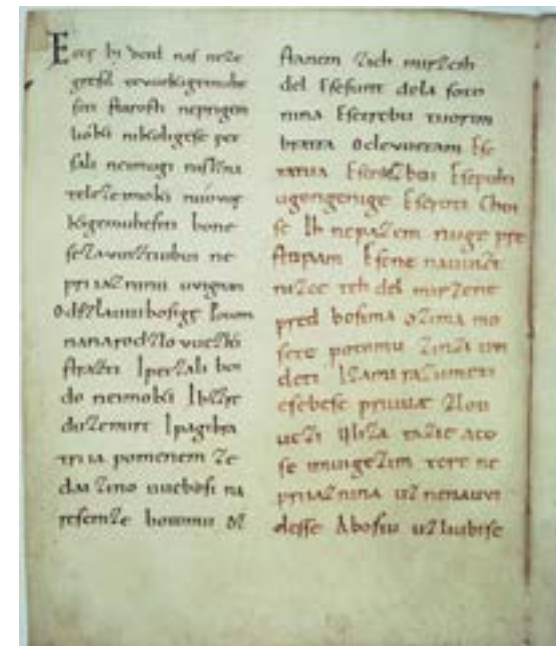 Ecce bi detd naſ neze
greſil tevuekigemube
ſiti ſtaroſti neprigem
lióki nikoligeſe pet
ſali neimugi niſlzna
teleze imoki núvuę
kigemubeſiti bone
ſezavuiztiubui ne
priiazninu uvignan
Odſzlauuiboſigę Potom
nanarodzlovuezki
ſtrazti Ipetzali boi
do neimoki Ibzzre
duzemirt Ipagibra
triia pomenem ze
daizino uueboſi na
reſemze botomu oz
ſtanem zich mirzcih
del Eſeſunt dela ſoto
nina Eſetrebu tuorim
bratra Oclevuetam Eſe
tatua Eſerazboi Eſepulti
ugongenige Eſeroti Choi
ſe Ih nepazem nuge pre
ſtopam Eſene nauuiz
nizce teh del mirzene
pred boſima ozima mo
ſete potomu zinzi uvi
deti Iſami razumeti
eſebeſe priuuae zlou
uezi Ulica tazie aco
ſe imuigezim tere ne
priiaznina uznenauvi
deſſe Aboſiu uzliubiſe